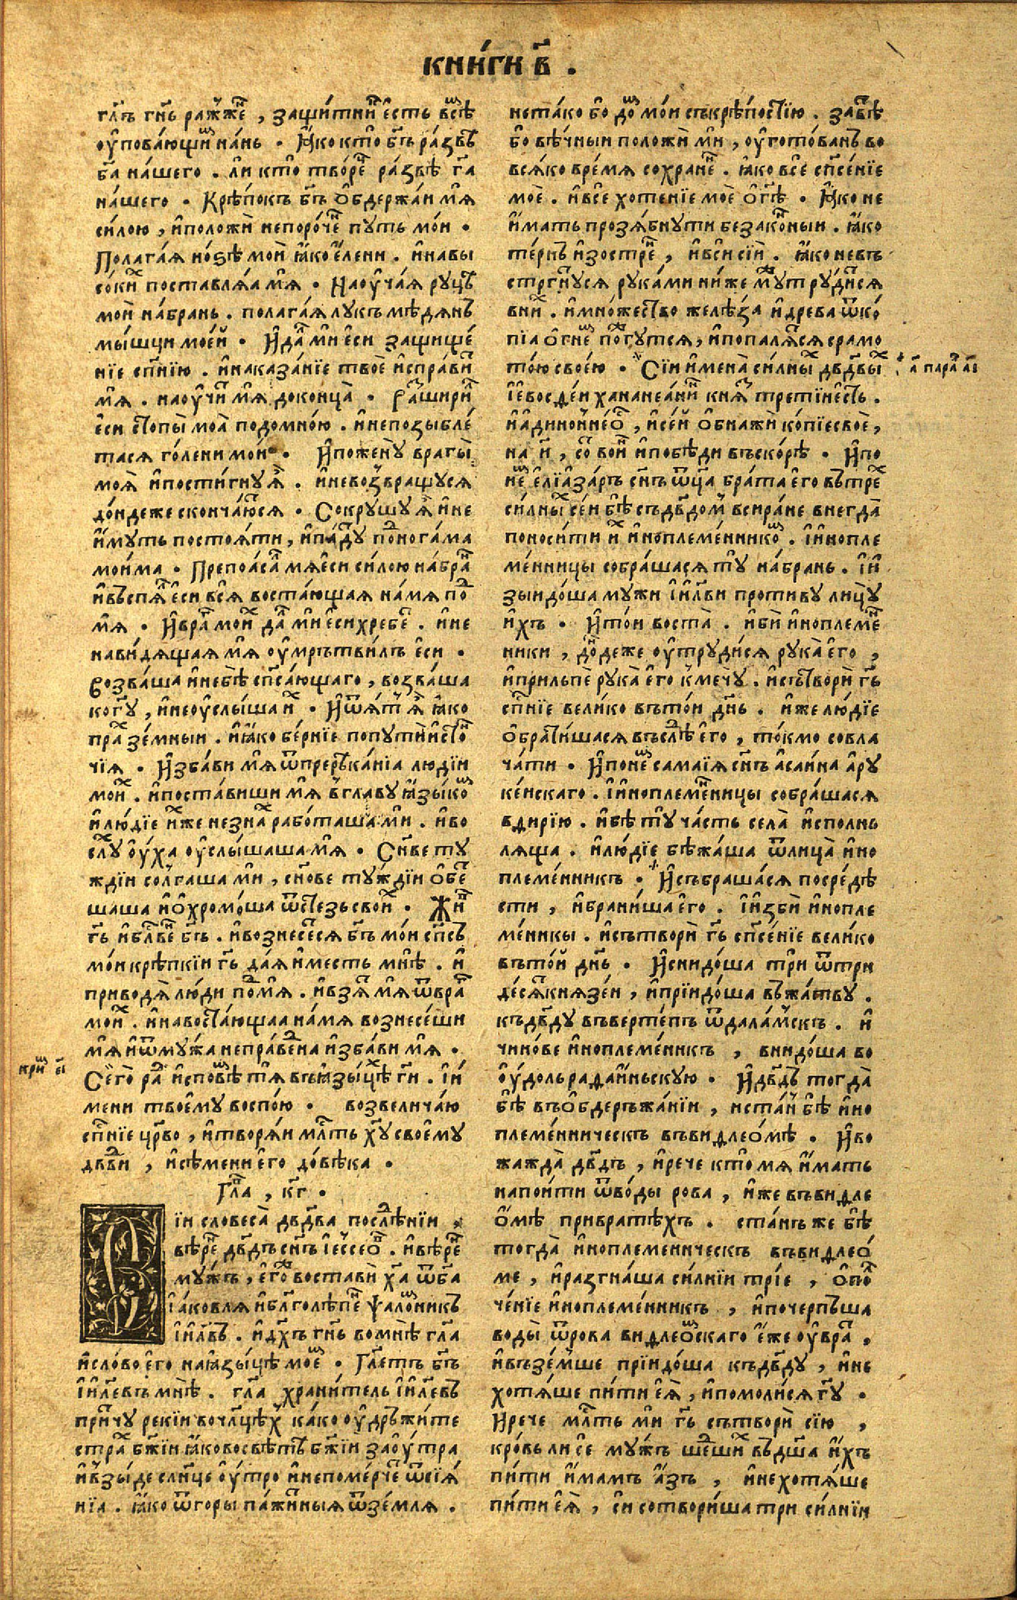 кни́ги в҃ .
гл҃ъ гн҇ь ражже́ , защи́тни е́сть всѣ́
оупова́ющи на́нь . Ꙗ҆́ко кто̀ бг҃ъ ра́звѣ
га̀ на́шего . ли кто̀ творе́ ра́звѣ га̀
на́шего . Крѣ́покъ бг҃ъ ѡ҆бдержа́и мѧ̀
си́лою , и҆положѝ непоро́че пу́ть мо́и .
Полага́ѧ но́ѕѣ моѝ ꙗ҆́ко е҆ле́ни . и҆навы
со́ки поставлѧ́ѧ мѧ̀ . Наоуча́ѧ ру́цѣ
моѝ на́брань . полага́ѧ лукъ мѣ́дѧнъ
мы́шци мое́й . И҆да́ ми есѝ защище́
нїе сп҃нїю . и҆наказа́нїе твоѐ и҆спра́ви
мѧ̀ . наоучи́ мѧ̀ доконца̀ . Разшири́
есѝ стопы̀ моѧ̀ подомно́ю . и҆непозыбле́
тасѧ го́лени мои̑ . И҆пожену̀ врагы̀
моѧ̀ и҆пости́гнуѧ . и҆невозвращу́сѧ
до́ндеже сконча́ютсѧ . Сокрушу̀ ѧ҆̀ и҆не
и҆́муть постоѧ́ти , и҆па́ду по́ногама
мои́ма . Препоѧ́са мѧ̀ есѝ си́лою на́бра
и҆въспѧ́ есѝ всѧ̀ востаю́щаѧ на́мѧ по́
мѧ̀ . И҆вра́ мои́ да́ ми есѝ хребе́ . и҆не
нави́дѧщаѧ мѧ̀ оумрътви́лъ есѝ .
Возва́ша и҆небѣ̀ сп҃са́ющаго , возва́ша
ко гу , и҆неоуслы́ша и́ . И҆ѿѧ́т ѧ҆̀ ꙗ҆́ко
пра́ зе́мныи . и҆ꙗ҆́ко бе́рнїе попути́и҆сто́
чїѧ . И҆зба́ви мѧ̀ ѿпререка́нїа лю́дїи
мои́ . и҆поста́виши мѧ̀ в главу̀ ꙗ҆зы́ко
и҆лю́дїе и҆́же незна́ рабо́таша ми . и҆во
слу́ оу́ха оуслы́шаша мѧ̀ . Сн҃ове ту́
ждїи солга́ша ми , сн҃ове ту́ждїи ѡ҆бе
ша́ша и҆ѡ҆хромо́ша ѿсте́зь свои́ . Жи́
гь и҆бл҃ве́ бг҃ъ . и҆вознесе́сѧ бг҃ъ мо́и сп҃съ
мо́и крѣ́пкїи гь даѧ́и ме́сть мнѣ̀ . и҆
приводѧ̀ лю́ди по́мѧ . и҆взѧ́ мѧ̀ ѿвра́
мои́ . и҆навостаю́щаа на́мѧ вознесе́ши
мѧ̀ и҆ѿмꙋ́жа непра́вена и҆зба́ви мѧ̀ .
кри єі҃
Сего̀ ра́ и҆сповѣ́ тѧ̀ въꙗ҆зы́цѣ ги . і҆и́
мени твоему̀ воспою̀ . возвелича́ю
сп҃нїе цр҃во , и҆творѧ́и мл҃ть ху̀ своему̀
дв҃ви , и҆сѣ́мени его̀ до́вѣка .
Гла , кг҃ .
їи словеса̀ дв҃два послѣ́нїи .
вѣ́ре дв҃дъ сн҃ъ і҆ессео . и҆вѣ́ре
му́жъ , его́ воста́ви ха ѿба
і҆а́ковлѧ и҆бл҃голѣ́пе ѱало́мникъ
і҆и҃лвъ . и҆дх҃ъ гнь вомнѣ̀ гла
и҆сло́во его̀ наꙗ҆зы́цѣ мое . Гле́тъ бг҃ъ
і҆и҃левъ мнѣ̀ . гла храни́тель і҆и҃левъ
при́чу рекїи вочл҃цѣх ка́ко оудръжи́те
стра бж҃їи ꙗ҆́ковосвѣ́тъ бж҃їи заоу́тра
и҆взы́де слн҃це оу́тро и҆непоме́рче ѿсїѧ́
нїа . ꙗ҆́ко ѿгоры̀ па́жиныѧ ѿземлѧ .
нета́ко бо до́ мо́и съкрѣ́постїю . завѣ́
бо вѣ́чныи положѝ ми , оугото́ванъ во
всѧ́ко вре́мѧ сохране́ . ꙗ҆́ко всѐ сп҃се́нїе
моѐ . и҆всѐ хоте́нїе моѐ ѡ҆гѣ . Ꙗ҆́ко не
и҆́мать прозѧ́бнути беззако́ныи . ꙗ҆́ко
те́рнъ и҆зостре́ , и҆всѝ сїѝ . ꙗ҆́ко невъ
стргнусѧ рука́ми ни́же мут руди́сѧ
вни́ . и҆мно́жество желѣ́за и҆дре́ва ѿко
пїа ѻ҆гне погу́тсѧ , и҆попалѧ́сѧ срамо
то́ю своею́ . Сїѝ и҆мена̀ си́лны дв҃двы
а҃ пара а҃і
І҆евосде́и ханане́ани кнѧ́ трети́иесть .
и҆адинонне́о , и҆се́и ѡ҆бнажѝ ко́пїе своѐ ,
на ѿ , со́ вои́ и҆побѣдѝ въско́рѣ . И҆по
не е҆лїаза́ръ сн҃ъ ѿца̀ бра́та его̀ вътре
си́лны се́и бѣ̀ съдв҃домъ всира́не внегда̀
поноси́ти и́ и҆ноплеме́ннико . і҆и҆нопле
ме́нницы собра́шасѧ ту̀ на́брань . і҆и
зыидо́ша му́жи і҆и҃лви проти́ву лицу̀
и҆́хъ . И҆то́и воста̀ . и҆бѝ и҆ноплеме́
ники , до́деже оутруди́сѧ рука̀ его̀ ,
и҆прильпѐ рука̀ его̀ к мечу̀ . и҆сътворѝ гь
сп҃нїе вели́ко въто́и днь . и҆́же лю́дїе
ѡ҆брати́шасѧ въслѣ́ его̀ , то́кмо совла
ча́ти . И҆поне́ самаі́ѧ сн҃ъ а҆саи́на а҆ру
ке́искаго . і҆и҆ноплеме́ницы собра́шасѧ
вди́рїю . и҆бѣ̀ ту̀ ча́сть села̀ и҆спо́лнь
лѧ́ща . и҆лю́дїе бѣжа́ша ѿлица̀ и҆но
племе́нникъ . И҆събра́шасѧ посредѣ̀
сти , и҆брани́ша его̀ . і҆и҆збѝ и҆нопле
ме́никы . и҆сътворѝ гь сп҃се́нїе вели́ко
въто́й днь . И҆снидо́ша трѝ ѿтри
десѧ́ кнѧзе́и , и҆прїидо́ша въжа́тву .
къдв҃ду въверте́пъ ѿдала́мскъ . и҆
чино́ве и҆ноплеме́никъ , вниидо́ша во
оудо́ль радаи́ньскую . И҆дв҃дъ тогда̀
бѣ̀ въѡ҆бдеръжа́нїи , и҆ста́и бѣ̀ и҆но
племе́нническъ въвидлео́мѣ . И҆во
жажда̀ дв҃дъ , и҆речѐ кто̀ мѧ̀ и҆́мать
напои́ти ѿводы̀ рова , и҆́же въви́дле
ѻ҆́мѣ прибра́тѣхъ . ста́нъ же бѣ̀
тогда̀ и҆ноплеме́ническъ въвидлео́
ме , и҆разгна́ша си́лнїи трїе , ѻ҆по
че́нїе и҆ноплеме́нникъ , и҆почерпъ́ша
воды̀ ѿрова видлео́скаго е҆́же оувра ,
и҆взе́мше прїидо́ша къдв҃ду , и҆не
хотѧ́ше пи́ти еѧ̀ , и҆помоли́сѧ гу .
И҆речѐ мл҃ть ми гь сътворѝ сїю̀ ,
кро́вь ли сѐ му́жъ ше́ши въдш҃а и҆́хъ
пи́ти и҆́мамъ а҆́зъ , и҆нехотѧ́ше
пи́ти еѧ̀ , сѝ сотвори́ша три си́лнїи